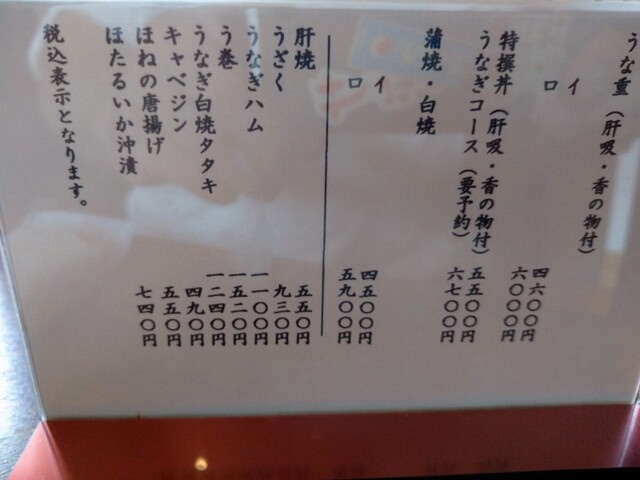 うな重（肝吸・香の物付）
イ 四六〇〇円
ロ 六〇〇〇円
特撰丼（肝吸・香の物付） 五五〇〇円
うなぎコース（要予約） 六七〇〇円
蒲焼・白焼
イ 四五〇〇円
ロ 五九〇〇円
肝焼 五五〇円
うざく 九三〇円
うなぎハム 一一〇〇円
う巻 一五二〇円
うなぎ白焼タタキ 一二四〇円
キャベジン 四九〇円
ほねの唐揚げ 五五〇円
ほたるいか沖漬 七四〇円
税込表示となります。